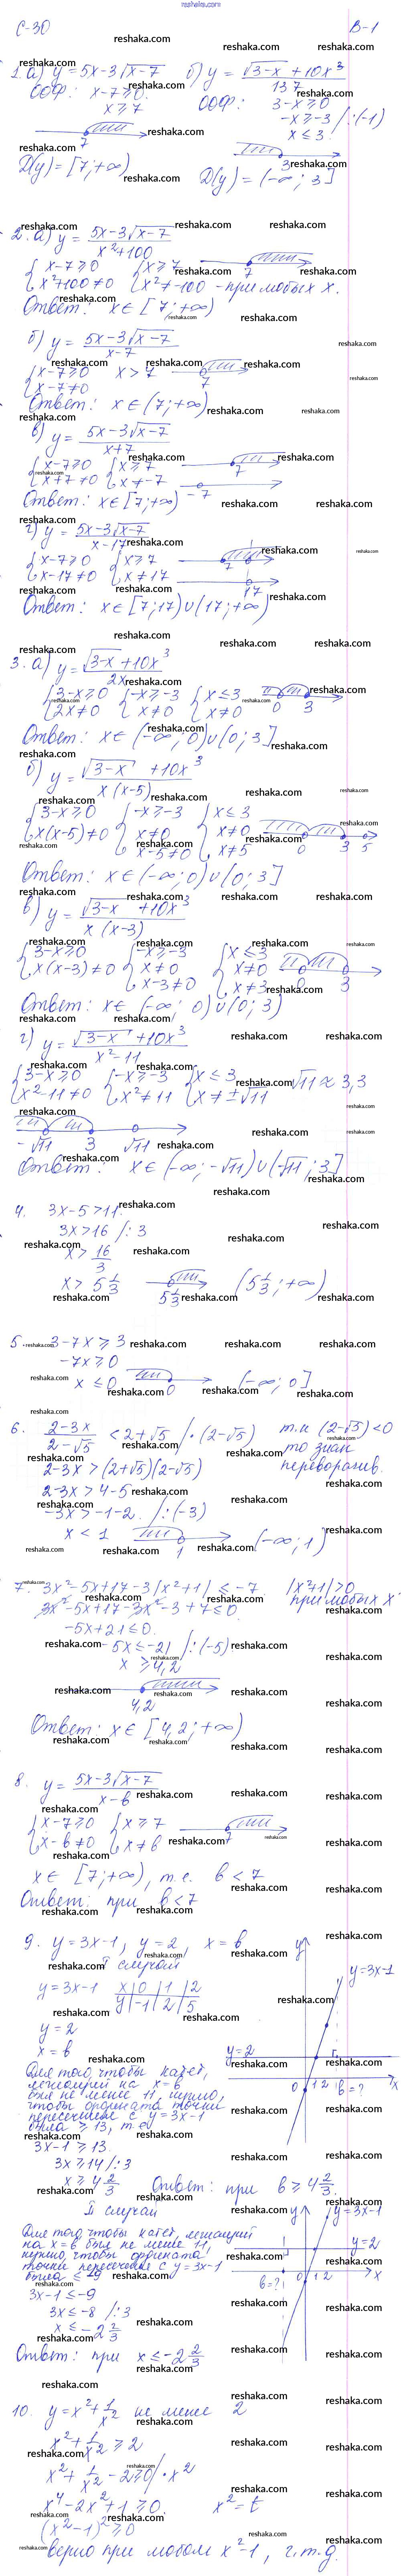 reshaka.com
С-30 В-1
1. а) y = 5x-3√x-7 б) y = √3-x + 10x³ / 137
ООФ: x-7≥0 ООФ: 3-x≥0
x≥7 -x≥-3 /:(-1)
x≤3
7
3
D(y) = [7;+∞) D(y) = (-∞; 3]
2. а) y = 5x-3√x-7 / x²+100
{x-7≥0 {x≥7
{x²+100≠0 {x²≠-100 - при любых x.
7
Ответ: x∈[7;+∞)
б) y = 5x-3√x-7 / x-7
{x-7≥0 x>7
{x-7≠0
7
Ответ: x∈(7;+∞)
в) y = 5x-3√x-7 / x+7
{x-7≥0 {x≥7
{x+7≠0 {x≠-7
7
-7
Ответ: x∈[7;+∞)
г) y = 5x-3√x-7 / x-17
{x-7≥0 {x≥7
{x-17≠0 {x≠17
7
17
Ответ: x∈[7;17)∪(17;+∞)
3. а) y = √3-x + 10x³ / 2x
{3-x≥0 {-x≥-3 {x≤3
{2x≠0 {x≠0 {x≠0
0 3
Ответ: x∈(-∞;0)∪(0;3]
б) y = √3-x + 10x³ / x(x-5)
{3-x≥0 {-x≥-3 {x≤3
{x(x-5)≠0 {x≠0 {x≠0
x-5≠0 x≠5
0 3 5
Ответ: x∈(-∞;0)∪(0;3]
в) y = √3-x + 10x³ / x(x-3)
{3-x≥0 {-x≥-3 {x≤3
{x(x-3)≠0 {x≠0 {x≠0
x-3≠0 x≠3
0 3
Ответ: x∈(-∞;0)∪(0;3)
г) y = √3-x + 10x³ / x²-11
{3-x≥0 {-x≥-3 {x≤3 √11≈3,3
{x²-11≠0 {x²≠11 {x≠±√11
-√11 3 √11
Ответ: x∈(-∞;-√11)∪(-√11;3]
4. 3x-5>11
3x>16 /:3
x>16/3
x>5 1/3 5 1/3 (5 1/3;+∞)
5. 3-7x≥3
-7x≥0
x≤0 0 (-∞;0]
6. 2-3x / 2-√5 < 2+√5 /·(2-√5) т.к (2-√5)<0
то знак
переворачив.
2-3x>(2+√5)(2-√5)
2-3x>4-5
-3x>-1-2 /:(-3)
x<1 1 (-∞;1)
7. 3x²-5x+17-3(x²+1)≤-7 (x²+1)>0
при любых x
3x²-5x+17-3x²-3+7≤0
-5x+21≤0
-5x≤-21 /:(-5)
x≥4,2
4,2
Ответ: x∈[4,2;+∞)
8. y = 5x-3√x-7 / x-b
{x-7≥0 {x≥7
{x-b≠0 {x≠b
7
x∈[7;+∞), т.е. b<7
Ответ: при b<7
9. y=3x-1, y=2, x=b
I случай
y=3x-1 x 0 1 2
y -1 2 5
y=2
x=b
y y=3x-1
y=2
0 1 2 b=? x
Для того, чтобы катет,
лежащий на x=b
был не менее 11, нужно,
чтобы ордината точки
пересечения с y=3x-1
была ≥13, т.е
3x-1≥13
3x≥14 /:3
x≥4 2/3 Ответ: при b≥4 2/3.
II случай
Для того чтобы катет, лежащий
на x=b был не менее 11,
нужно, чтобы ордината
точки пересечения с y=3x-1
была ≤-9
y y=3x-1
y=2
b=? 0 1 2 x
3x-1≤-9
3x≤-8 /:3
x≤-2 2/3
Ответ: при x≤-2 2/3
10. y=x²+1/x² не менее 2
x²+1/x²≥2
x²+1/x²-2≥0 /·x²
x⁴-2x²+1≥0. x²=t
(x²-1)²≥0
верно при любом x²-1, ч.т.д.